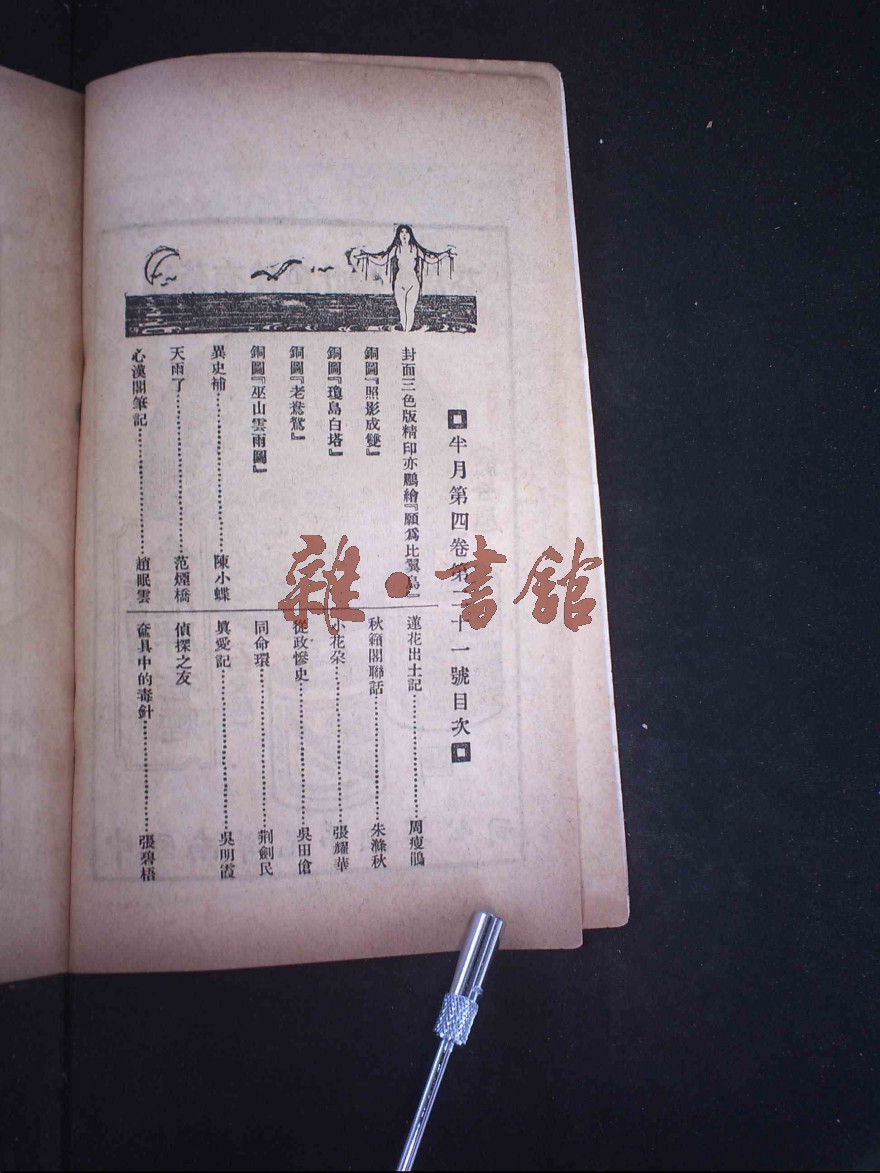 半月第四卷第二十一號目次
封面三色版精印亦鵬繪『願爲比翼鳥』
銅圖『照影成雙』
銅圖『瓊島白塔』
銅圖『老鴛鴦』
銅圖『巫山雲雨圖』
異史補……陳小蝶
天雨了……范煙橋
心漢閣筆記……趙眠雲
蓮花出土記……周瘦鵑
秋籟閣聯話……朱滌秋
小花朵……張耀華
從政慘史……吳田傖
同命環……荆劍民
眞愛記……吳明霞
偵探之友
奩具中的毒針……張碧梧
雜·書館